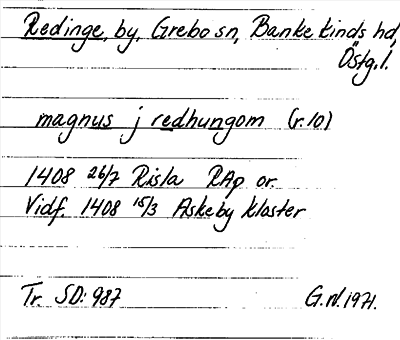 Redinge, by, Grebo sn, Bankekinds hd,
Östg.l.
magnus j redhungom (r.10)
1408 26/7 Risla RAp or.
Vidf. 1408 15/3 Askeby kloster
Tr. SD: 987 G.W.1971.